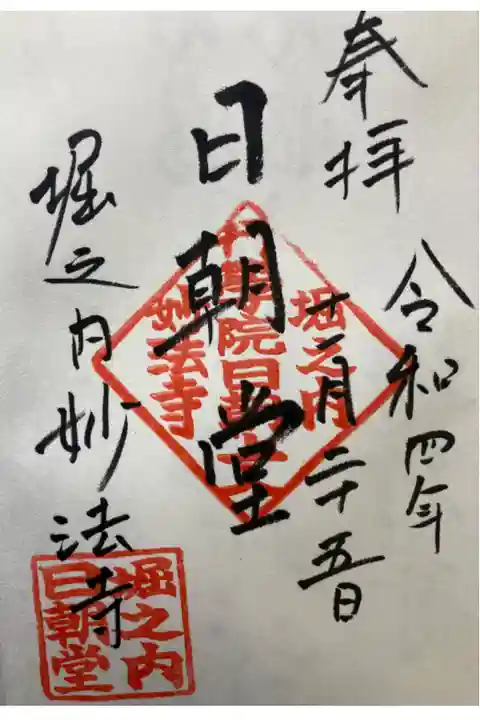 奉拝
令和四年
十一月二十五日
日朝堂
堀之内妙法寺
堀之内
学院日朝
妙法寺
堀之内
日朝堂